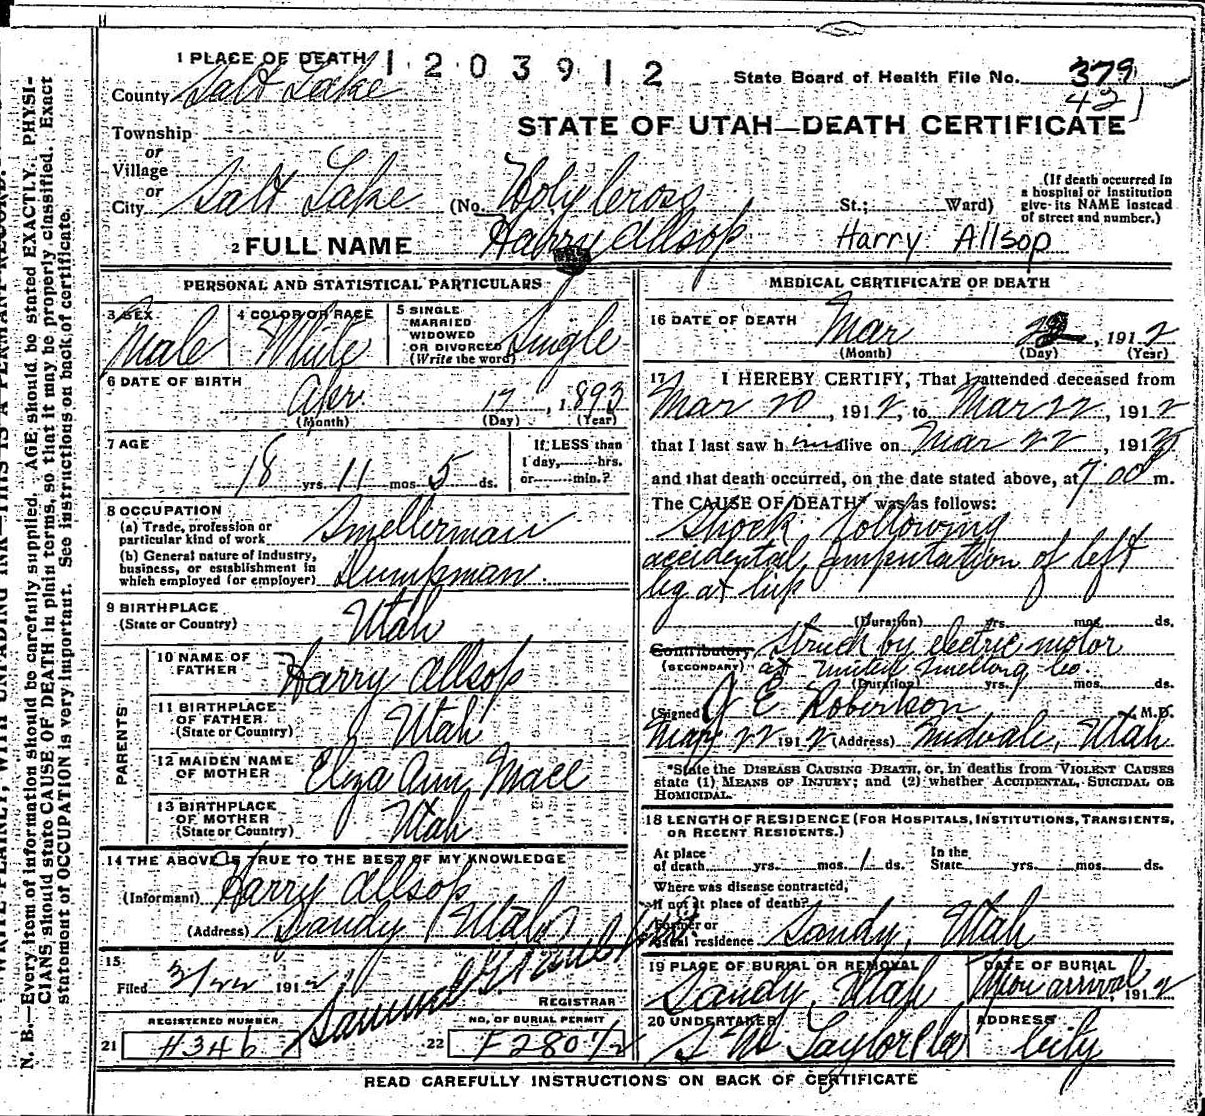 1 PLACE OF DEATH 1 2 0 3 9 1 2
State Board of Health File No. 379
421
County Salt Lake
STATE OF UTAH—DEATH CERTIFICATE
Township
or
Village
or
City Salt Lake (No. Holy Cross St.; Ward)
(If death occurred in
a hospital or institution
give its NAME instead
of street and number.)
2 FULL NAME Harry Allsop Harry Allsop
PERSONAL AND STATISTICAL PARTICULARS
3 SEX Male
4 COLOR OR RACE White
5 SINGLE
MARRIED
WIDOWED
OR DIVORCED
(Write the word) Single
6 DATE OF BIRTH
Apr 17, 1893
(Month) (Day) (Year)
7 AGE
18 yrs. 11 mos. 5 ds.
If LESS than
1 day, hrs.
or min.?
8 OCCUPATION
(a) Trade, profession or
particular kind of work Smelterman
(b) General nature of industry,
business, or establishment in
which employed (or employer) Dumpman
9 BIRTHPLACE
(State or Country) Utah
PARENTS
10 NAME OF
FATHER Harry Allsop
11 BIRTHPLACE
OF FATHER
(State or Country) Utah
12 MAIDEN NAME
OF MOTHER Eliza Ann Mace
13 BIRTHPLACE
OF MOTHER
(State or Country) Utah
14 THE ABOVE IS TRUE TO THE BEST OF MY KNOWLEDGE
(Informant) Harry Allsop
(Address) Sandy Utah
15
Filed 3/22 1912
REGISTRAR
REGISTERED NUMBER
21 H346
NO. OF BURIAL PERMIT
22 F2801/2
MEDICAL CERTIFICATE OF DEATH
16 DATE OF DEATH Mar 22, 1912
(Month) (Day) (Year)
17 I HEREBY CERTIFY, That I attended deceased from
Mar 20, 1912, to Mar 22, 1912
that I last saw him alive on Mar 22 1912
and that death occurred, on the date stated above, at 7 00 m.
The CAUSE OF DEATH* was as follows:
Shock following
accidental amputation of left
leg at hip
(Duration) yrs. mos. ds.
Contributory Struck by electric motor
(SECONDARY) at United Smelting Co.
(Duration) yrs. mos. ds.
(Signed) J E Robertson M.D.
Mar 22 1912 (Address) Midvale, Utah
*State the DISEASE CAUSING DEATH, or, in deaths from VIOLENT CAUSES
state (1) MEANS OF INJURY; and (2) whether ACCIDENTAL, SUICIDAL OR
HOMICIDAL.
18 LENGTH OF RESIDENCE (FOR HOSPITALS, INSTITUTIONS, TRANSIENTS,
OR RECENT RESIDENTS.)
At place
of death yrs. mos. 1 ds.
In the
State yrs. mos. ds.
Where was disease contracted,
if not at place of death?
Former or
usual residence Sandy, Utah
19 PLACE OF BURIAL OR REMOVAL
Sandy, Utah
DATE OF BURIAL
Upon arrival, 1912
20 UNDERTAKER
S M Taylor & Co
ADDRESS
City
READ CAREFULLY INSTRUCTIONS ON BACK OF CERTIFICATE
N. B.—Every item of information should be carefully supplied. AGE should be stated EXACTLY. PHYSI-
CIANS should state CAUSE OF DEATH in plain terms, so that it may be properly classified. Exact
statement of OCCUPATION is very important. See instructions on back of certificate.